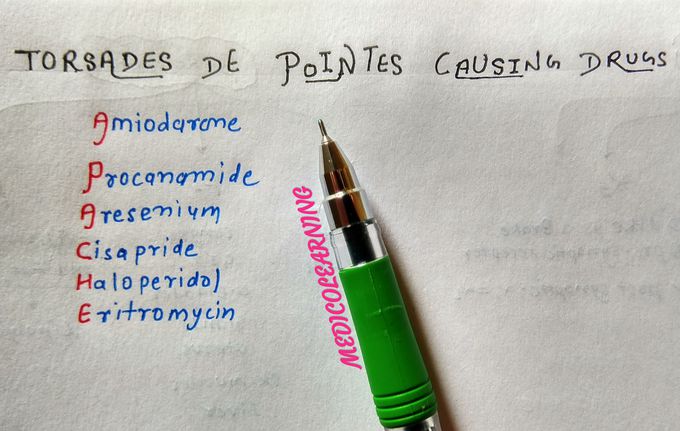 TORSADES DE POINTES CAUSING DRUGS
Amiodarone
Procanamide
Aresenium
Cisapride
Haloperidol
Eritromycin
MEDICOLEARNING